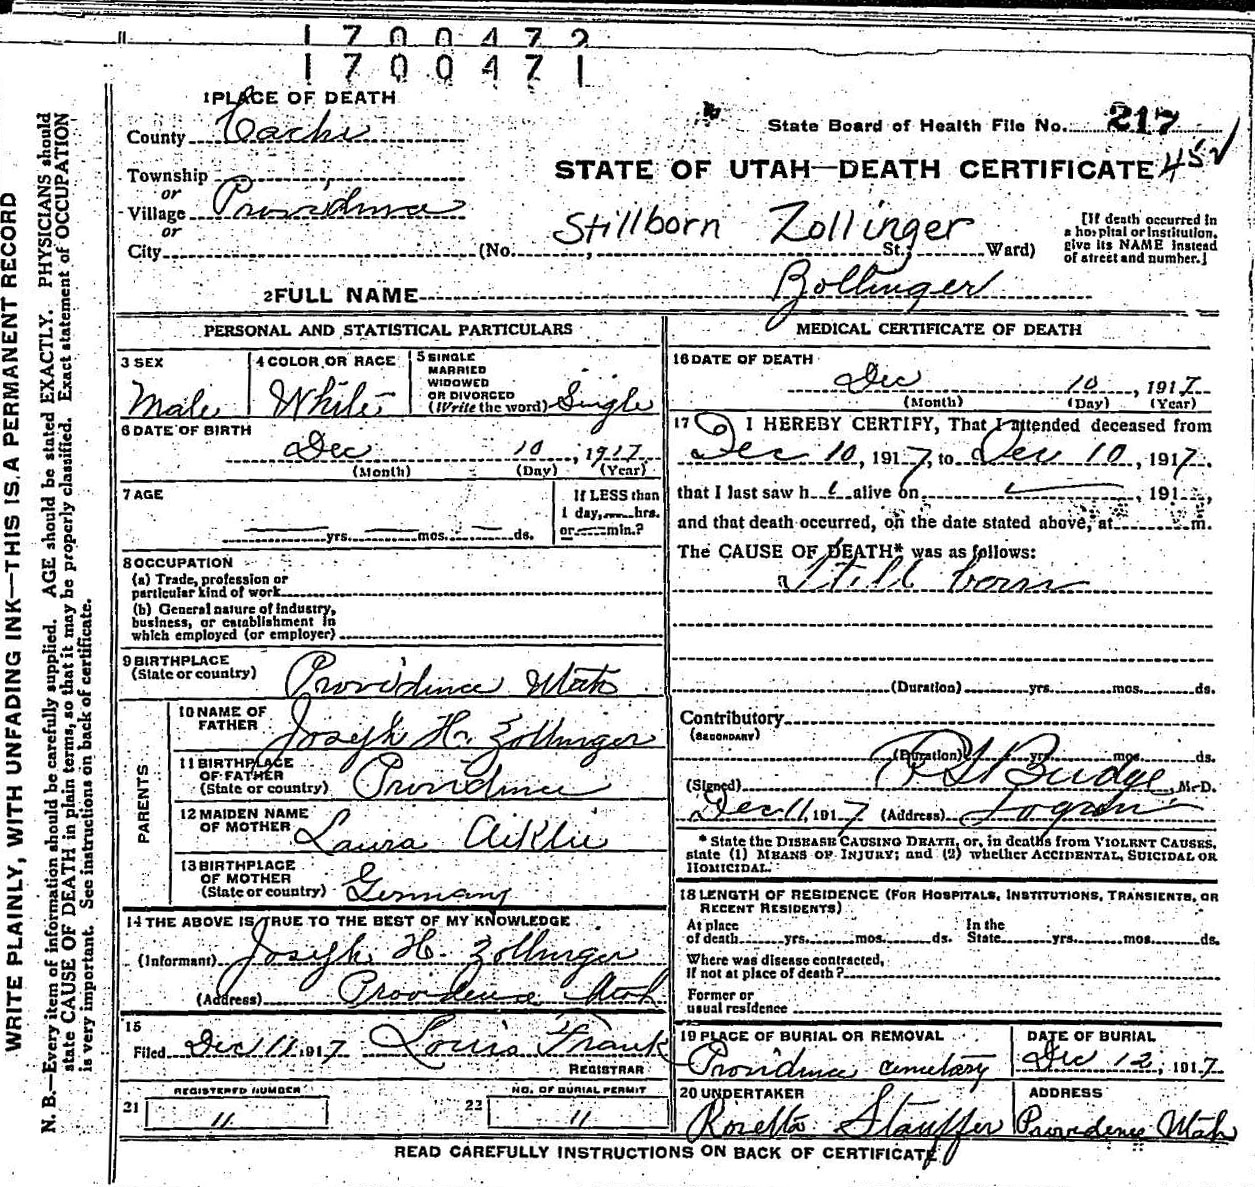 1700472
1700471
WRITE PLAINLY, WITH UNFADING INK—THIS IS A PERMANENT RECORD
N. B.—Every item of information should be carefully supplied. AGE should be stated EXACTLY. PHYSICIANS should
state CAUSE OF DEATH in plain terms, so that it may be properly classified. Exact statement of OCCUPATION
is very important. See instructions on back of certificate.
1 PLACE OF DEATH
County Cache
Township
or
Village Providence
or
City (No. , St., Ward)
State Board of Health File No. 217
STATE OF UTAH—DEATH CERTIFICATE 452
Stillborn Zollinger
[If death occurred in
a hospital or institution,
give its NAME instead
of street and number.]
2 FULL NAME Zollinger
PERSONAL AND STATISTICAL PARTICULARS
3 SEX
Male
4 COLOR OR RACE
White
5 SINGLE
MARRIED
WIDOWED
OR DIVORCED
(Write the word) Single
6 DATE OF BIRTH
Dec 10, 1917
(Month) (Day) (Year)
7 AGE
yrs. mos. ds.
If LESS than
1 day, hrs.
or min.?
8 OCCUPATION
(a) Trade, profession or
particular kind of work
(b) General nature of industry,
business, or establishment in
which employed (or employer)
9 BIRTHPLACE
(State or country) Providence Utah
PARENTS
10 NAME OF
FATHER Joseph H. Zollinger
11 BIRTHPLACE
OF FATHER
(State or country) Providence
12 MAIDEN NAME
OF MOTHER Laura Aiklie
13 BIRTHPLACE
OF MOTHER
(State or country) Germany
14 THE ABOVE IS TRUE TO THE BEST OF MY KNOWLEDGE
(Informant) Joseph H. Zollinger
(Address) Providence Utah
15
Filed Dec 11 1917 Louis Frank
REGISTRAR
REGISTERED NUMBER
21 11
NO. OF BURIAL PERMIT
22 11
MEDICAL CERTIFICATE OF DEATH
16 DATE OF DEATH
Dec 10, 1917
(Month) (Day) (Year)
17 I HEREBY CERTIFY, That I attended deceased from
Dec 10, 1917, to Dec 10, 1917.
that I last saw h i alive on , 191 ,
and that death occurred, on the date stated above, at m.
The CAUSE OF DEATH* was as follows:
Still born
(Duration) yrs. mos. ds.
Contributory
(SECONDARY)
(Duration) yrs. mos. ds.
(Signed) Budge, M. D.
Dec 11, 1917 (Address) Logan
* State the DISEASE CAUSING DEATH, or, in deaths from VIOLENT CAUSES,
state (1) MEANS OF INJURY; and (2) whether ACCIDENTAL, SUICIDAL OR
HOMICIDAL.
18 LENGTH OF RESIDENCE (FOR HOSPITALS, INSTITUTIONS, TRANSIENTS, OR
RECENT RESIDENTS)
At place
of death yrs. mos. ds.
In the
State yrs. mos. ds.
Where was disease contracted,
if not at place of death?
Former or
usual residence
19 PLACE OF BURIAL OR REMOVAL
Providence cemetary
DATE OF BURIAL
Dec 12, 1917
20 UNDERTAKER
Rosetta Stauffer
ADDRESS
Providence Utah
READ CAREFULLY INSTRUCTIONS ON BACK OF CERTIFICATE